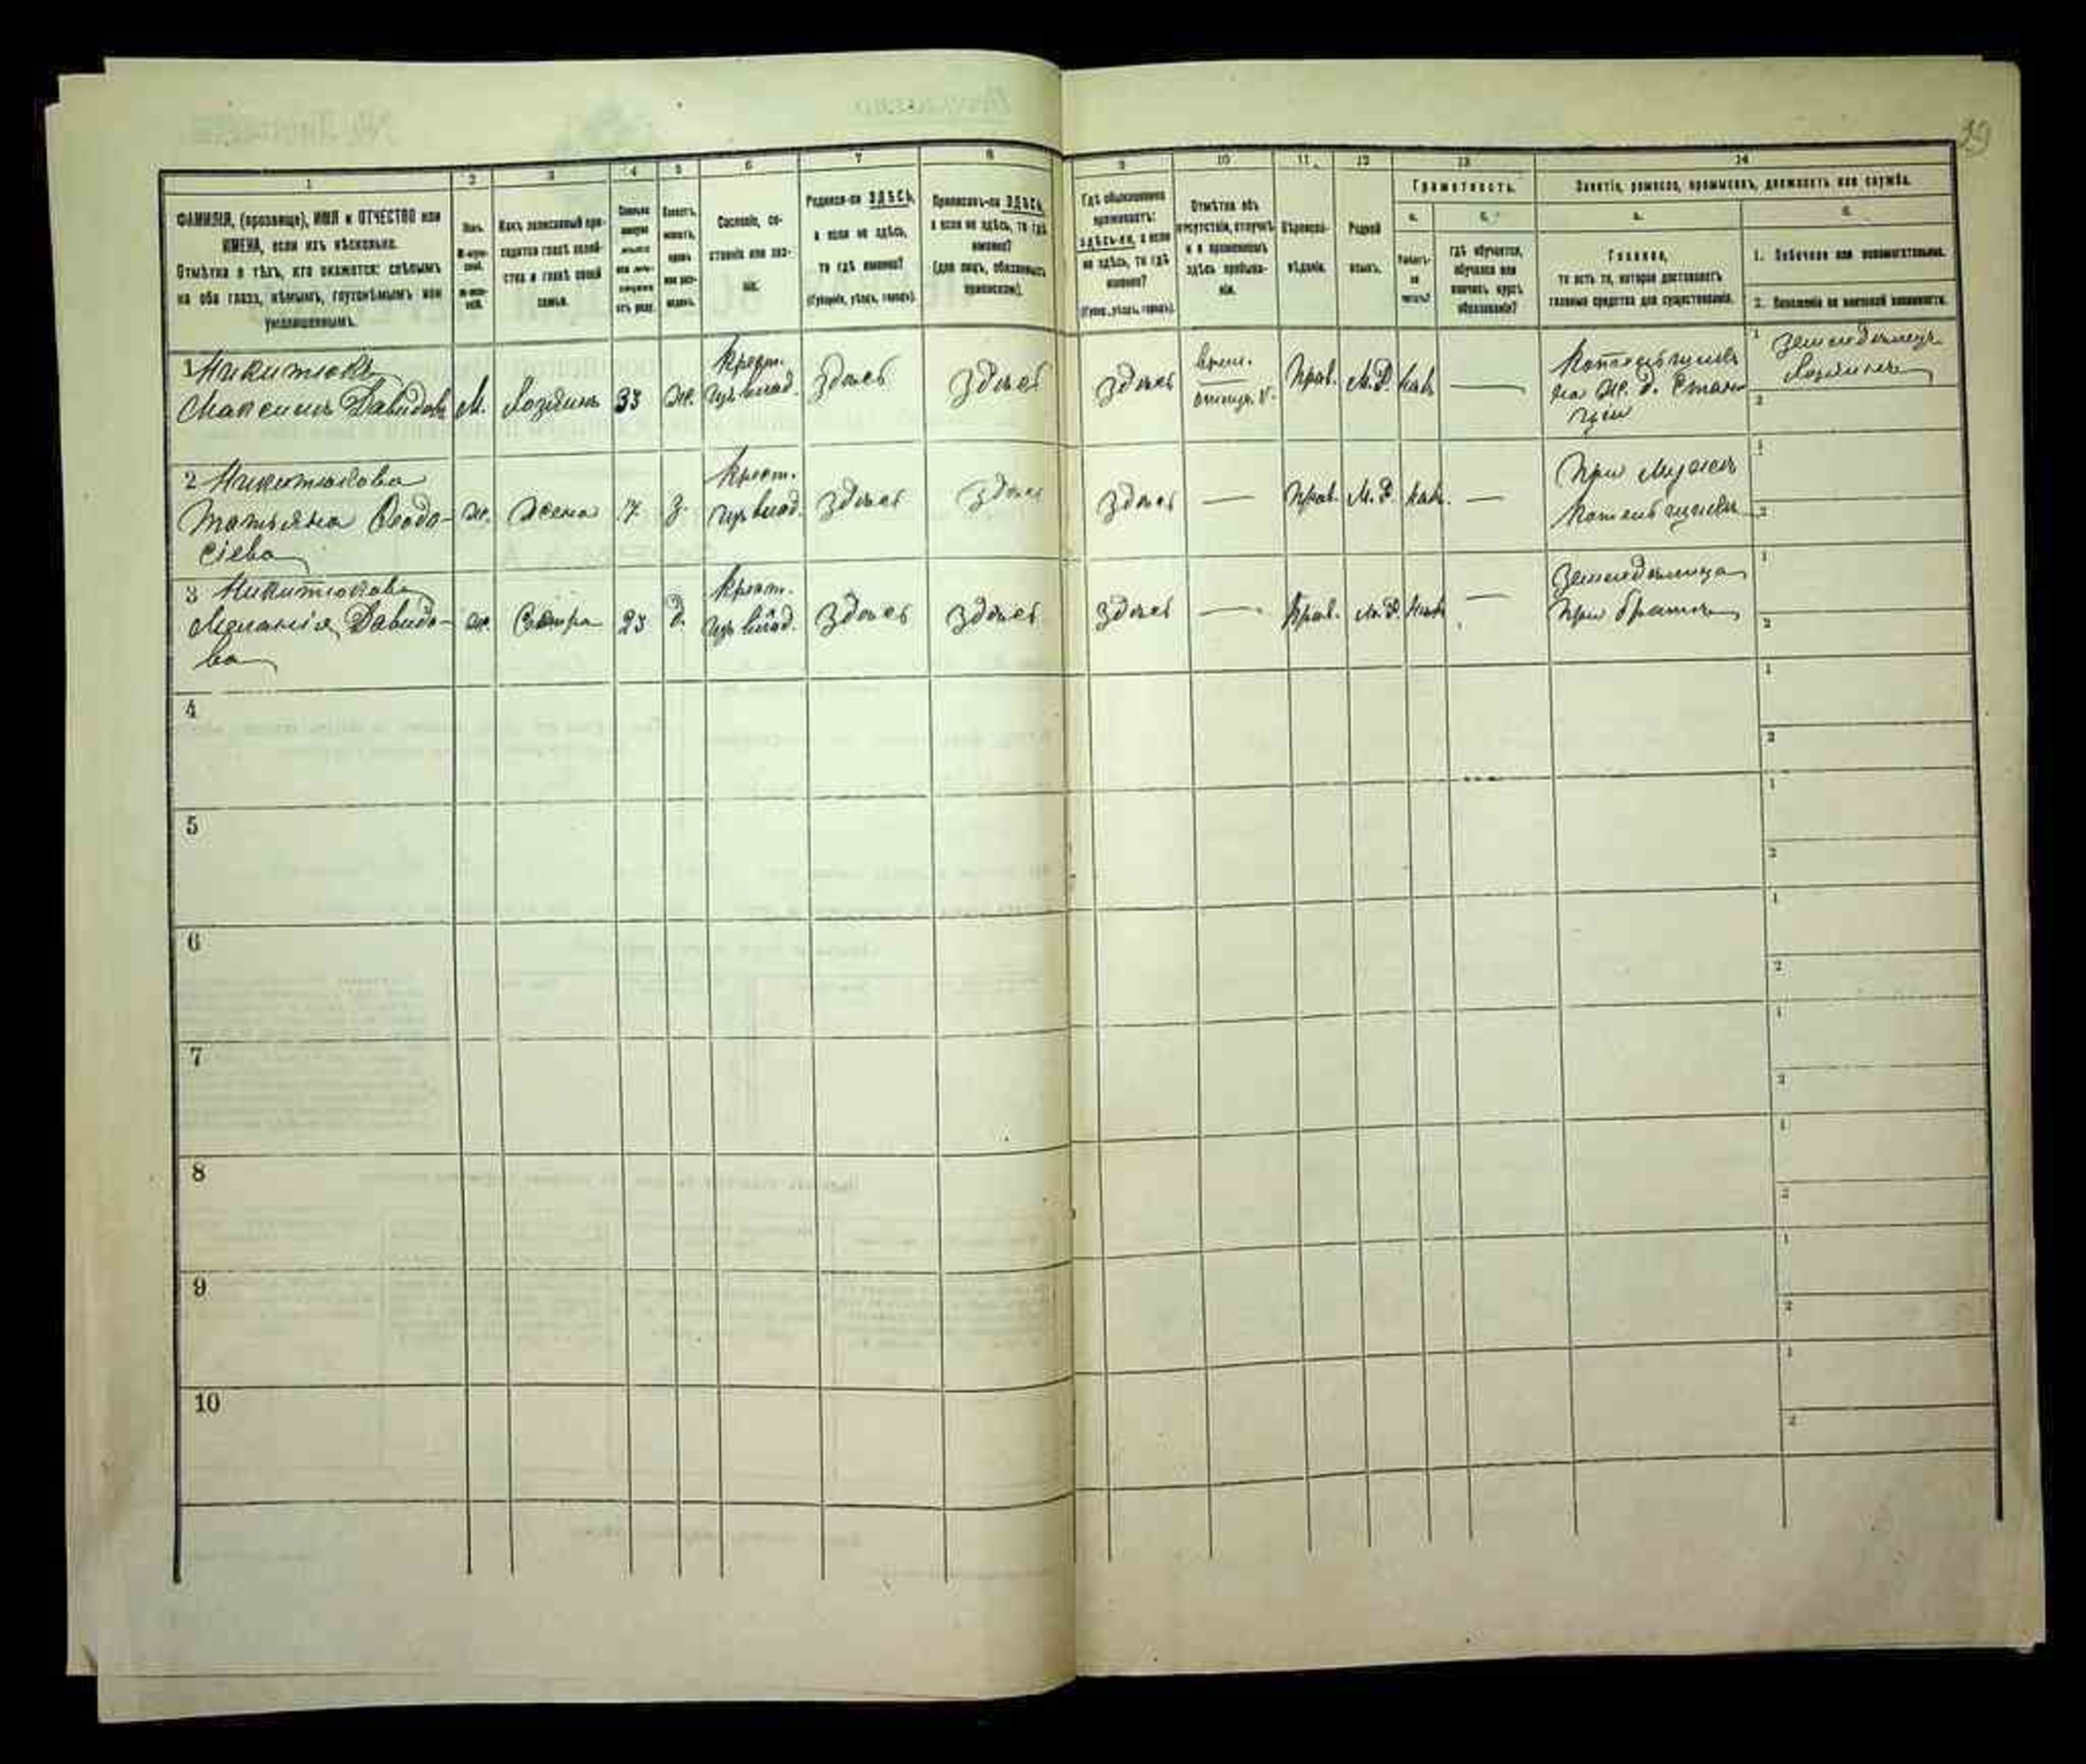 39
1 2 3 4 5 6 7 8 9 10 11 12 13 14
ФАМИЛІЯ, (прозвище), ИМЯ и ОТЧЕСТВО или
ИМЕНА, если ихъ нѣсколько.
Отмѣтка о тѣхъ, кто окажется: слѣпымъ
на оба глаза, нѣмымъ, глухонѣмымъ или
умалишеннымъ.
Полъ.
М-муж-
ской.
Ж-жен-
скій.
Какъ записанный при-
ходится главѣ хозяй-
ства и главѣ своей
семьи.
Сословіе, со-
стояніе или зва-
ніе.
Родился-ли ЗДѢСЬ,
а если не здѣсь,
то гдѣ именно?
(Губернія, уѣздъ, городъ).
Приписанъ-ли ЗДѢСЬ,
а если не здѣсь, то гдѣ
именно?
(для лицъ, обязанныхъ
припискою).
Гдѣ обыкновенно
проживаетъ:
здѣсь-ли, а если
не здѣсь, то гдѣ
именно?
(Губер., уѣздъ, городъ).
Отмѣтка объ
отсутствіи, отлучкѣ
и о временномъ
здѣсь пребыва-
ніи.
Вѣроиспо-
вѣданіе.
Родной
языкъ.
Грамотность.
а.
Умѣетъ-
ли
читать?
б.
гдѣ обучается,
обучался или
кончилъ курсъ
образованія?
Занятіе, ремесло, промыселъ, должность или служба.
а.
Главное,
то есть то, которое доставляетъ
главныя средства для существованія.
б.
1. Побочное или вспомогательное.
2. Положеніе по воинской повинности.
1 Никитюкъ
Максимъ Давидовъ М. Хозяинъ 33 Ж. Крест. изъ влад. здѣсь здѣсь здѣсь Прав. М.Р. 1 Земледѣлецъ
Хозяинъ
2
2 Никитюкова
Татьяна Феодо-
сіева ж. Жена Крест. изъ влад. здѣсь здѣсь здѣсь — Прав. М.Р. — При мужѣ 1
2
3 Никитюкова
Меланія Давидо-
ва ж. Сестра 23 д. Крест. изъ влад. здѣсь здѣсь здѣсь — Прав. М.Р. — Земледѣлица
при братѣ 1
2
4 1
2
5 1
2
6 1
2
7 1
2
8 1
2
9 1
2
10 1
2